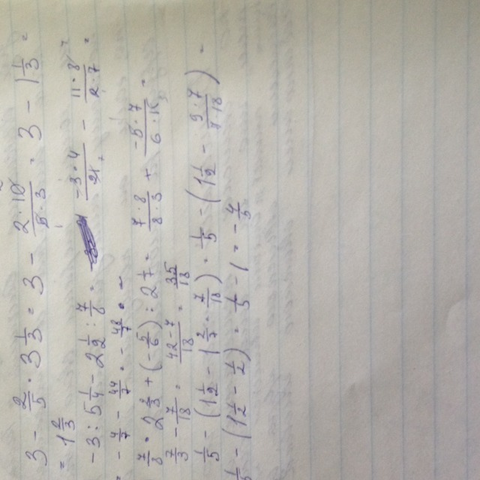 3 - 2/5 · 3 1/3 = 3 - (2·10)/(5·3) = 3 - 1 1/3 =
= 1 2/3
-3 : 5 1/4 - 2 1/2 : 7/8 = (-3·4)/21 - (11·8)/(2·7) =
= - 4/7 - 44/7 = - 48/7 =
7/8 · 2 2/3 + (- 5/6) : 2 1/7 = (7·8)/(8·3) + (-5·7)/(6·15) =
7/3 - 7/18 = (42-7)/18 = 35/18
1/5 - (1 1/2 - (2/7 · 7/18) = 1/5 - (1 1/2 - (9·7)/(7·18)) =
1/5 - (1 1/2 - 1/2) = 1/5 - 1 = - 4/5